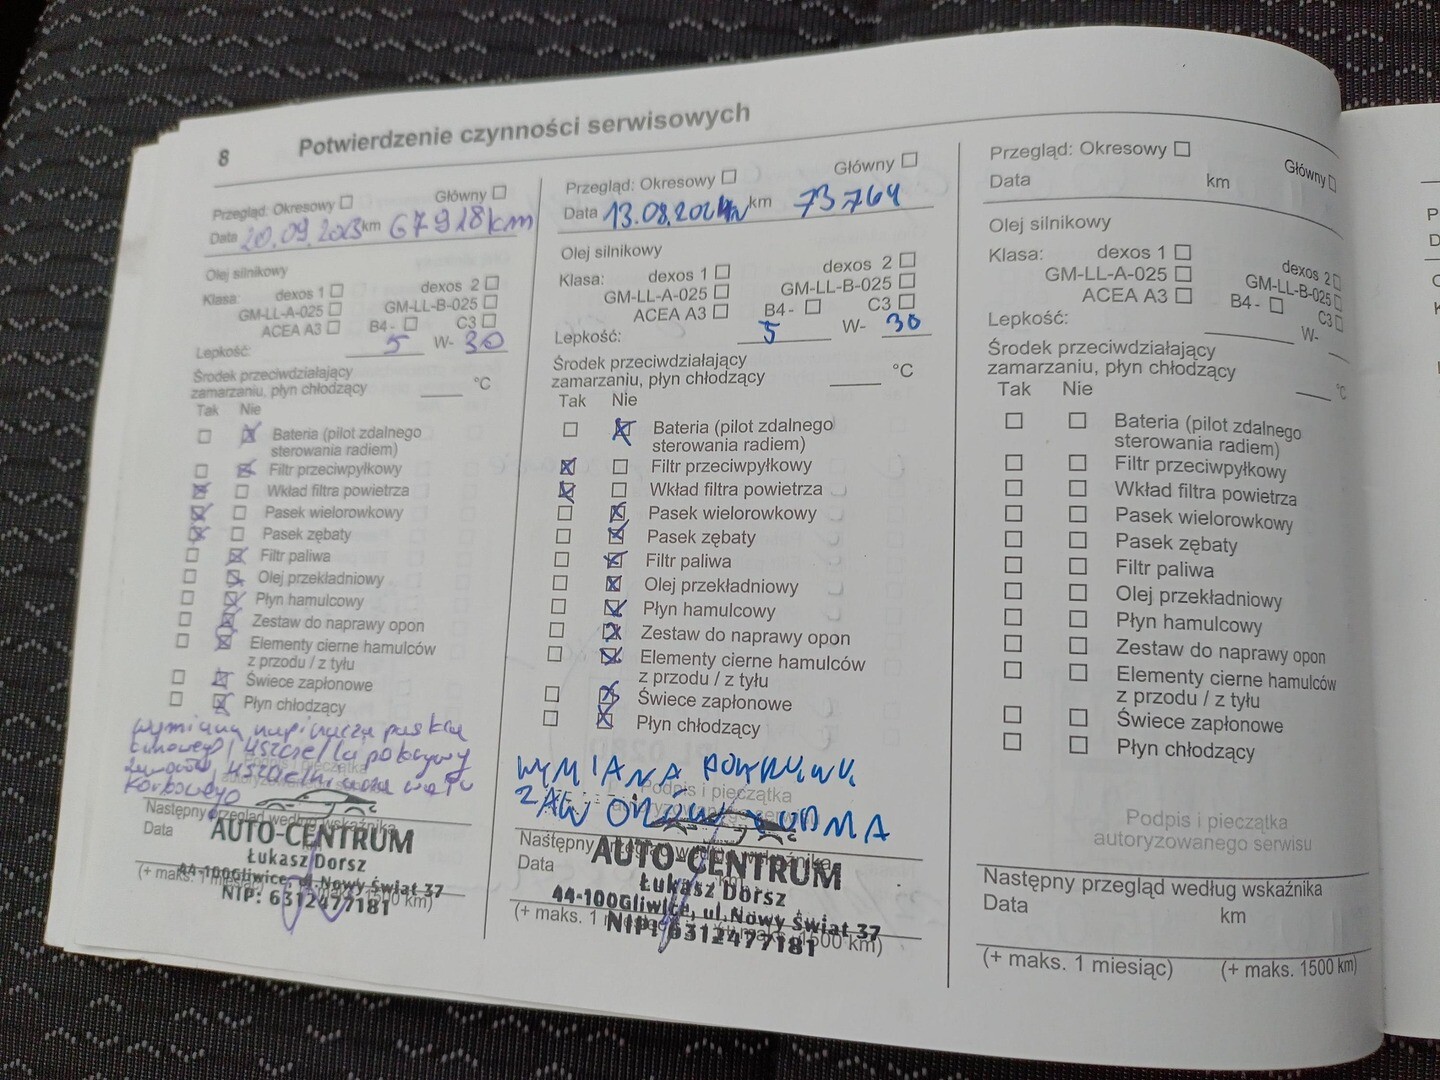 8 Potwierdzenie czynności serwisowych
Przegląd: Okresowy Główny
Data 20.09.2023 km 67918km
Olej silnikowy
Klasa: dexos 1 dexos 2
GM-LL-A-025 GM-LL-B-025
ACEA A3 B4- C3
Lepkość: 5 W- 30
Środek przeciwdziałający
zamarzaniu, płyn chłodzący °C
Tak Nie
Bateria (pilot zdalnego
sterowania radiem)
Filtr przeciwpyłkowy
Wkład filtra powietrza
Pasek wielorowkowy
Pasek zębaty
Filtr paliwa
Olej przekładniowy
Płyn hamulcowy
Zestaw do naprawy opon
Elementy cierne hamulców
z przodu / z tyłu
Świece zapłonowe
Płyn chłodzący
wymiana napinacza paska
uszczelka pokrywy
zaworów, wału
korbowego
Następny przegląd według wskaźnika
Data
AUTO-CENTRUM
Łukasz Dorsz
44-100Gliwice, ul.Nowy Świat 37
NIP: 6312477181
(+ maks. 1 miesiąc) km)
Przegląd: Okresowy Główny
Data 13.08.2024 km 73764
Olej silnikowy
Klasa: dexos 1 dexos 2
GM-LL-A-025 GM-LL-B-025
ACEA A3 B4- C3
Lepkość: 5 W- 30
Środek przeciwdziałający
zamarzaniu, płyn chłodzący °C
Tak Nie
Bateria (pilot zdalnego
sterowania radiem)
Filtr przeciwpyłkowy
Wkład filtra powietrza
Pasek wielorowkowy
Pasek zębaty
Filtr paliwa
Olej przekładniowy
Płyn hamulcowy
Zestaw do naprawy opon
Elementy cierne hamulców
z przodu / z tyłu
Świece zapłonowe
Płyn chłodzący
WYMIANA POKRYWY
Podpis i pieczątka
ZAWORÓW
Następny wskaźnika
Data
AUTO-CENTRUM
Łukasz Dorsz
44-100Gliwice, ul.Nowy Świat 37
NIP: 6312477181
(+ maks. 1 1500 km)
Przegląd: Okresowy Główny
Data km
Olej silnikowy
Klasa: dexos 1 dexos 2
GM-LL-A-025 GM-LL-B-025
ACEA A3 B4- C3
Lepkość: W-
Środek przeciwdziałający
zamarzaniu, płyn chłodzący °C
Tak Nie
Bateria (pilot zdalnego
sterowania radiem)
Filtr przeciwpyłkowy
Wkład filtra powietrza
Pasek wielorowkowy
Pasek zębaty
Filtr paliwa
Olej przekładniowy
Płyn hamulcowy
Zestaw do naprawy opon
Elementy cierne hamulców
z przodu / z tyłu
Świece zapłonowe
Płyn chłodzący
Podpis i pieczątka
autoryzowanego serwisu
Następny przegląd według wskaźnika
Data km
(+ maks. 1 miesiąc) (+ maks. 1500 km)